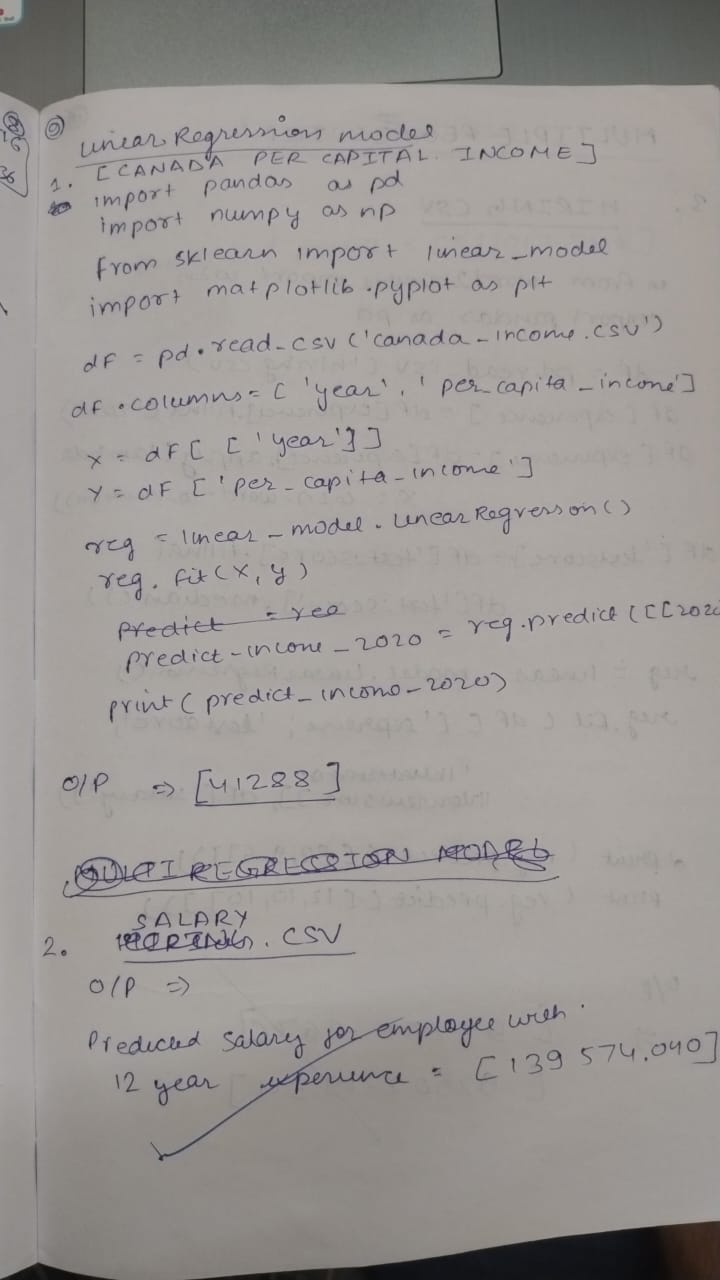 Linear Regression model
[CANADA PER CAPITAL INCOME]
1. import pandas as pd
import numpy as np
from sklearn import linear_model
import matplotlib.pyplot as plt
df = pd.read_csv ('canada_income.csv')
df.columns = [ 'year', 'per_capita_income']
x = df [ [ 'year'] ]
y = df [ 'per_capita_income']
reg = linear_model.LinearRegression()
reg. fit (x, y)
Predict = reo
predict_income_2020 = reg.predict ([[202
print ( predict_income_2020)
O/P => [41288]
MULTI REGRESSION MODEL
SALARY
2. .CSV
O/P =>
Predicted salary for employee with
12 year experience = [139 574.040]